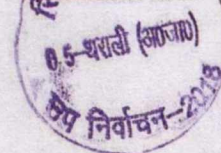 05-थराली (अ०जा०)
उप निर्वाचन-2018